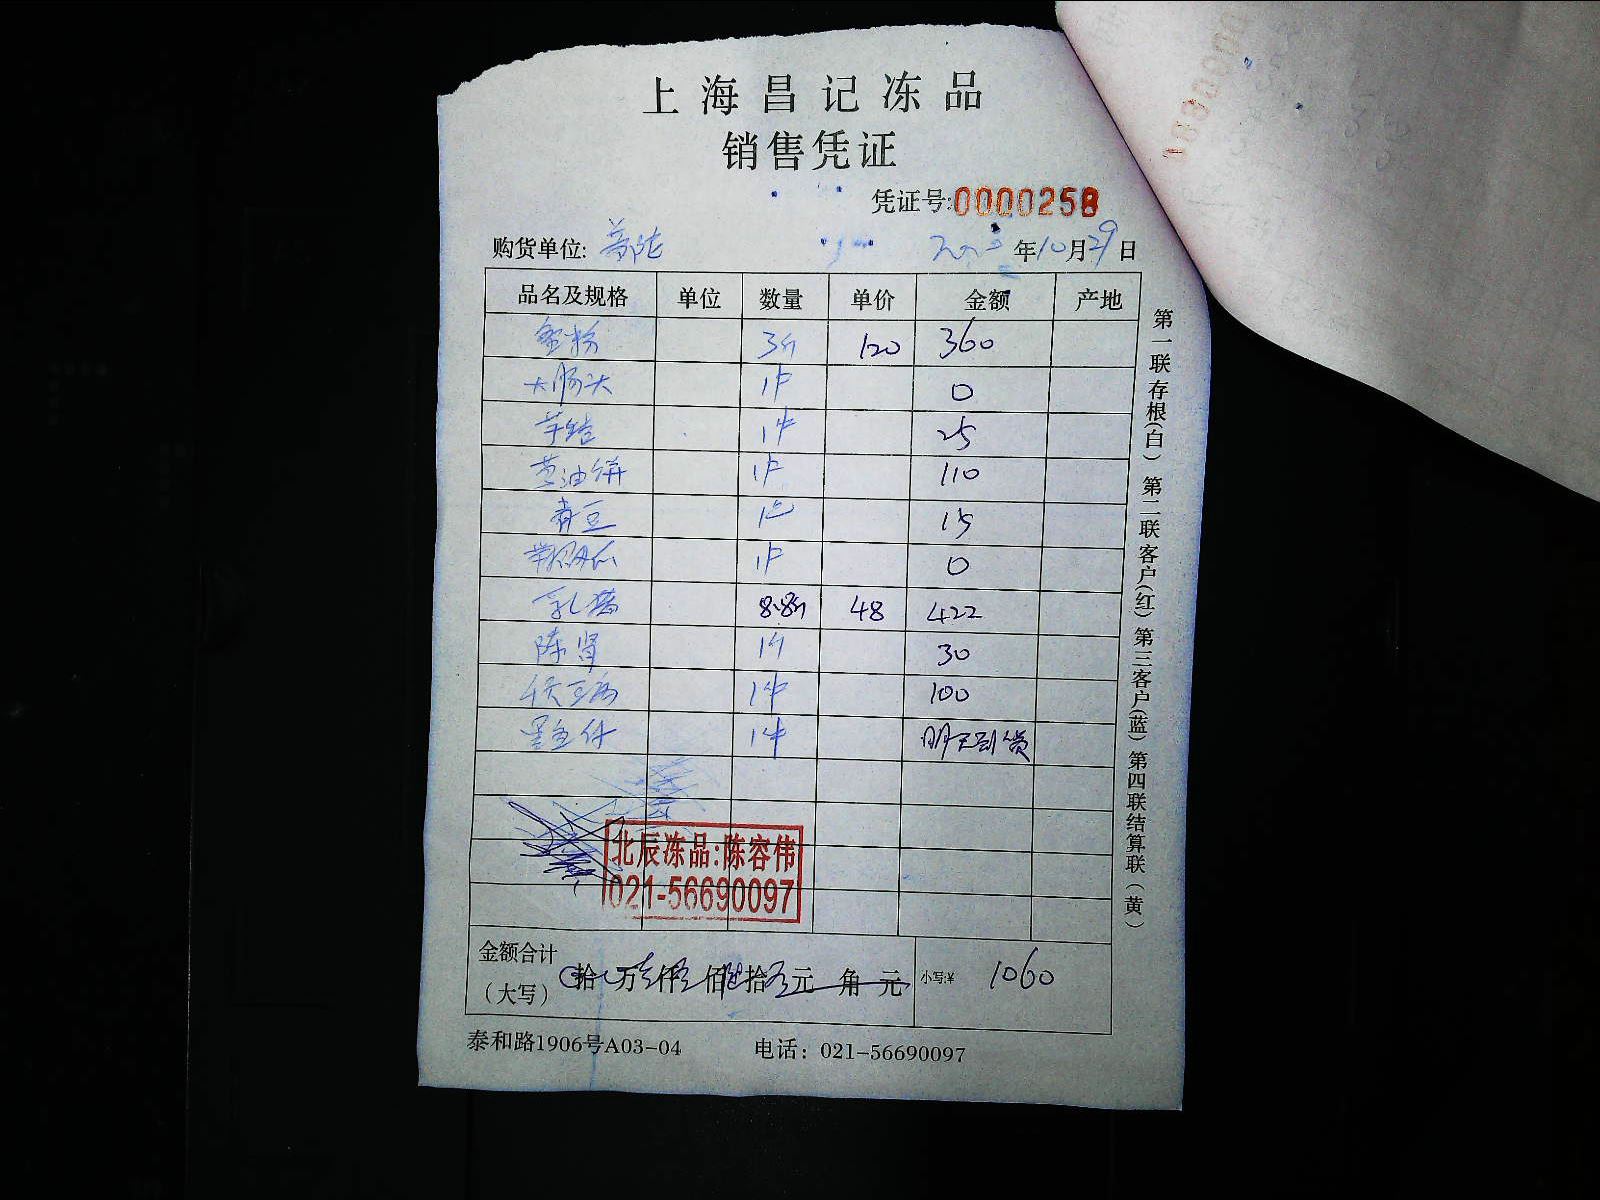 上海昌记冻品
销售凭证
凭证号:0000258
购货单位: 普陀 年10月29日
品名及规格 单位 数量 单价 金额 产地
蟹粉 3斤 120 360
大肠头 1件 0
1件 25
葱油饼 1件 110
青豆 1包 15
1件 0
乳猪 8.8斤 48 422
30
1件 100
1件 明天到货
北辰冻品:陈容伟
021-56690097
金额合计
(大写) 拾 万 仟 佰 拾 元 角 元 小写:¥ 1060
泰和路1906号A03-04 电话: 021-56690097
第一联存根(白) 第二联客户(红) 第三客户(蓝) 第四联结算联(黄)